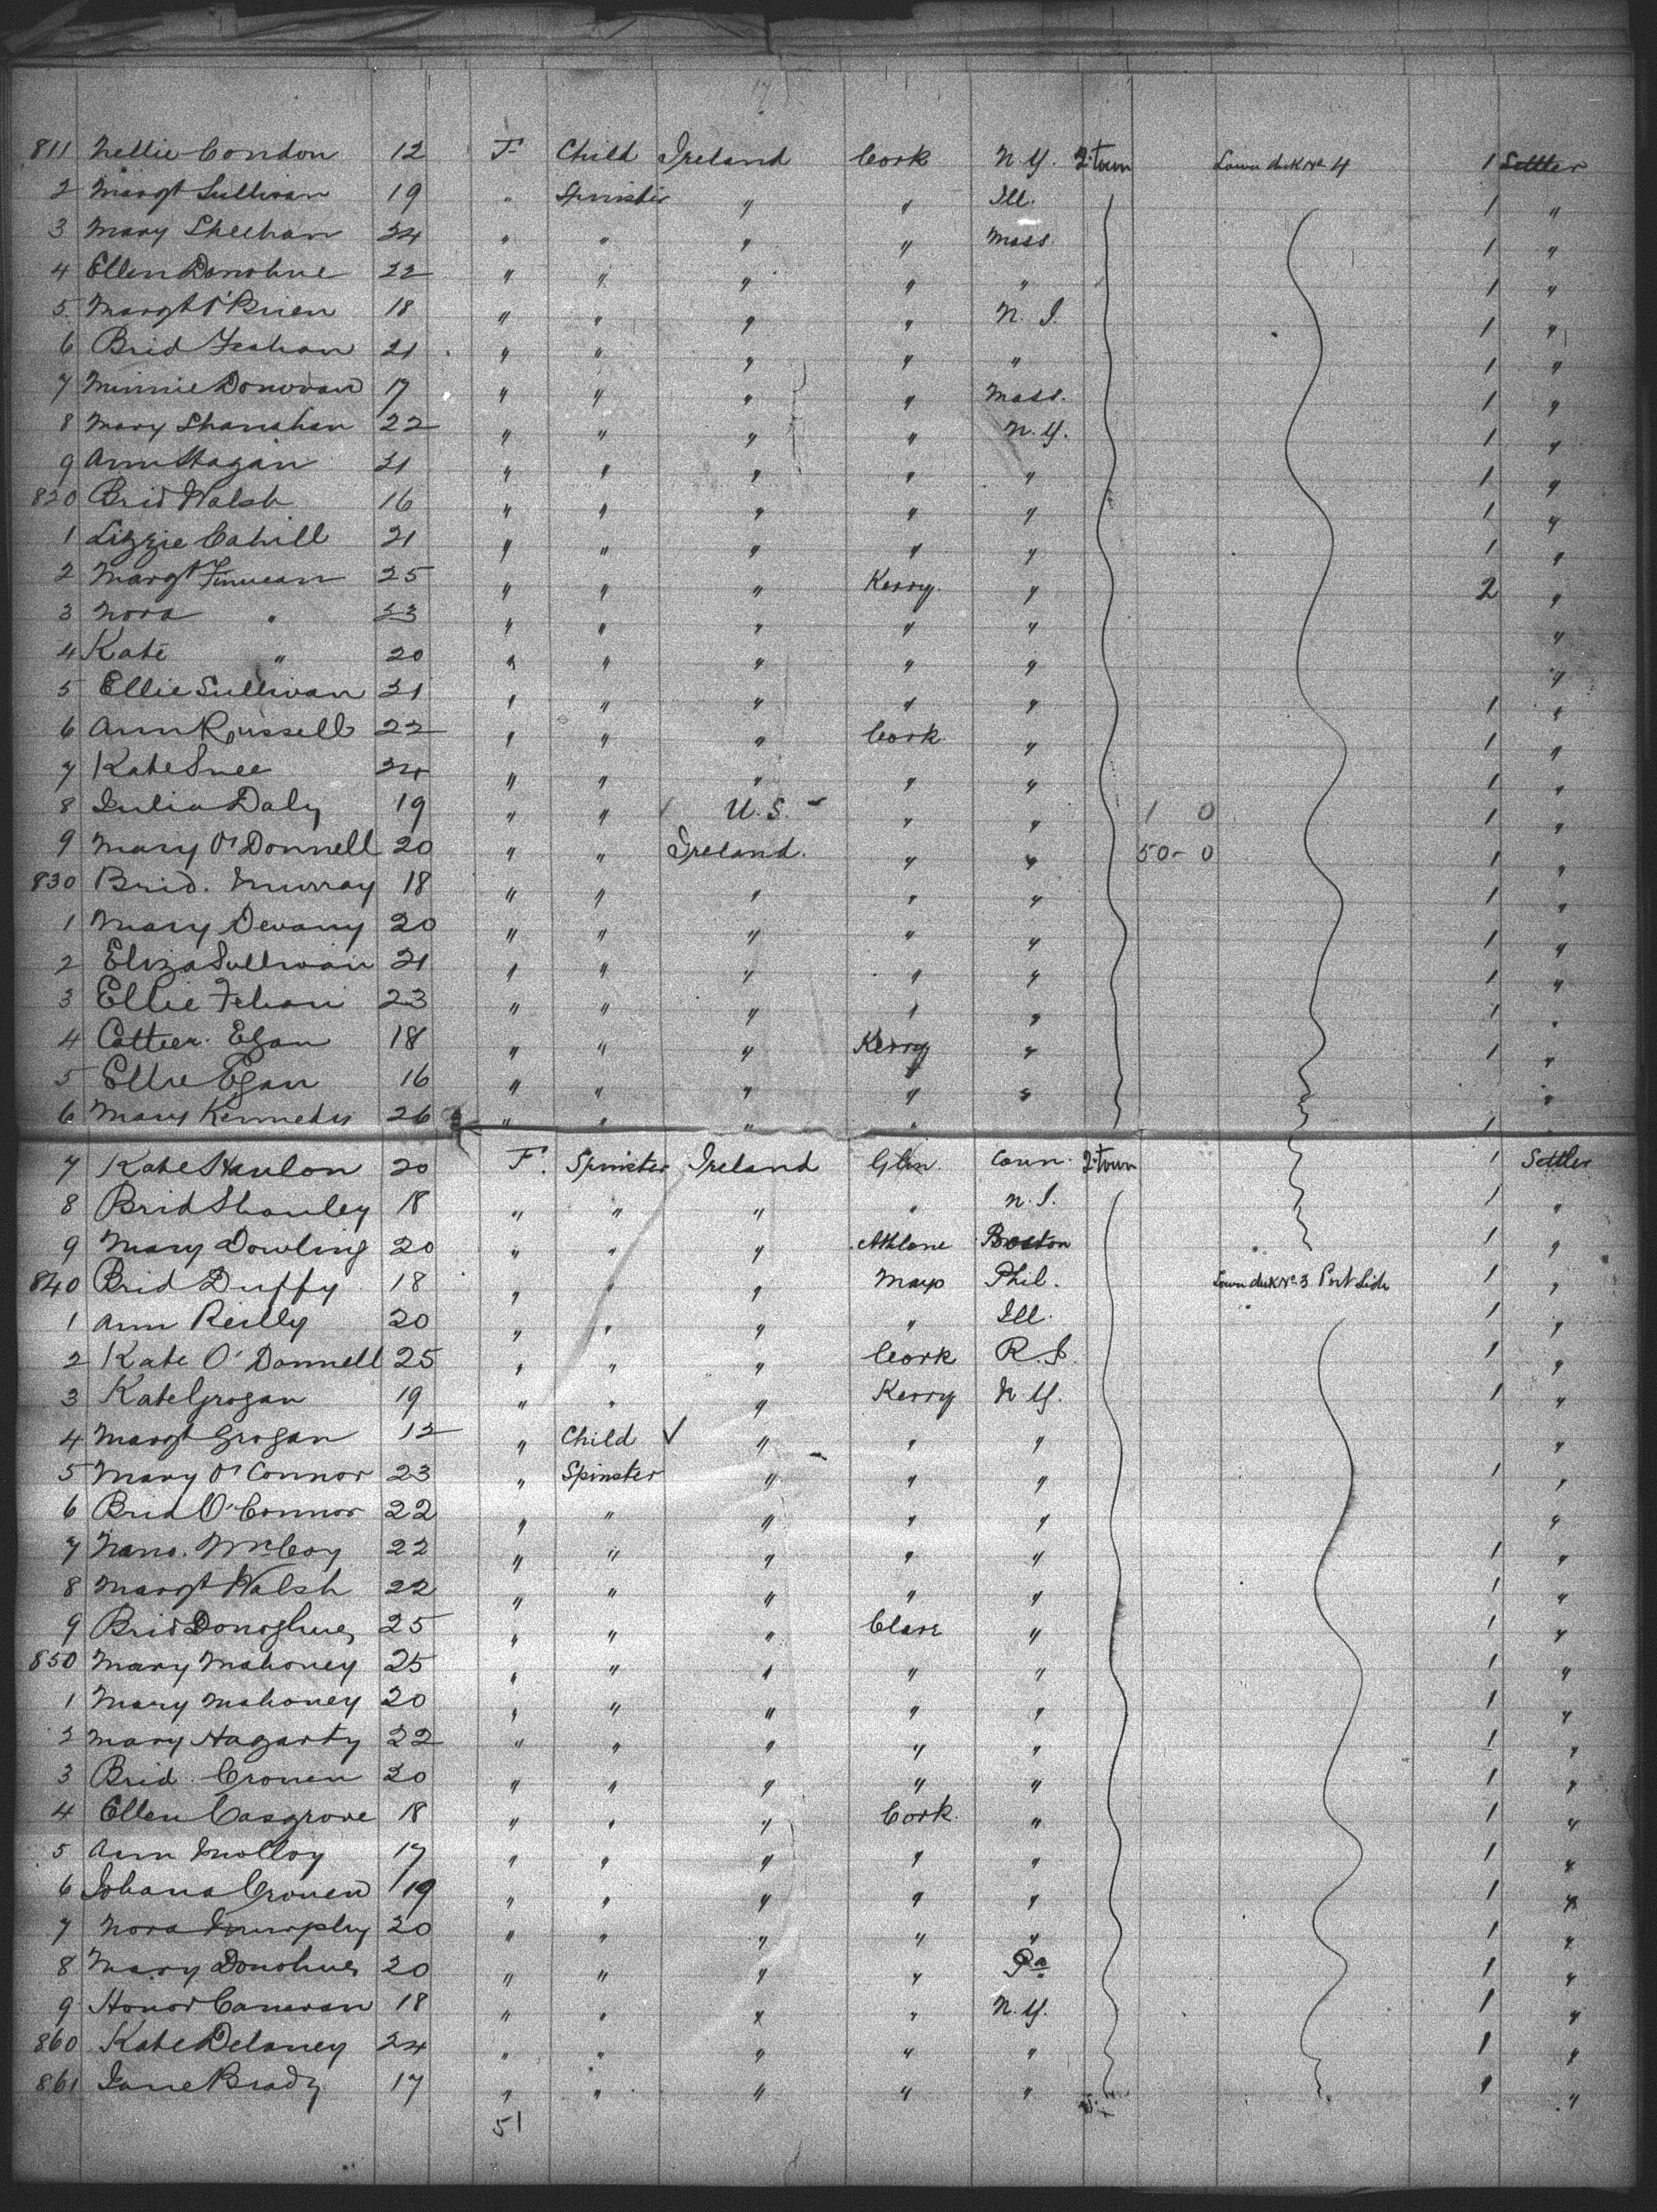 811 Nellie Condon 12 F Child Ireland Cork N.Y. 2. town Lower deck No 4 1 Settler
2 Margt Sullivan 19 " Spinster " " Ill. 1 "
3 Mary Sheehan 24 " " " " Mass. 1 "
4 Ellen Donohue 22 " " " " " 1 "
5 Margt O'Brien 18 " " " " N. J. 1 "
6 Brid 21 " " " " " 1 "
7 Minnie Donovan 17 " " " " Mass. 1 "
8 Mary Shanahan 22 " " " " N.Y. 1 "
9 Ann Hagan 21 " " " " " 1 "
820 Brid Walsh 16 " " " " " 1 "
1 Lizzie Cahill 21 " " " " " 1 "
2 Margt Finucan 25 " " " Kerry " 2 "
3 Nora " 23 " " " " " "
4 Kate " 20 " " " " " "
5 Ellie Sullivan 21 " " " " " 1 "
6 Ann Russell 22 " " " Cork " 1 "
7 Kate 24 " " " " " 1 "
8 Julia Daly 19 " " U.S. - " " 1 0 1 "
9 Mary O'Donnell 20 " " Ireland. " " 50- 0 1 "
830 Brid. Murray 18 " " " " " 1 "
1 Mary Devany 20 " " " " " 1 "
2 Eliza Sullivan 21 " " " " " 1 "
3 Ellie Fehan 23 " " " " " 1 "
4 Cather. Egan 18 " " " Kerry " 1 "
5 Ellie Egan 16 " " " " " "
6 Mary Kennedy 26 " " " " 1 "
7 Kate Hanlon 20 F. Spinster Ireland Glin. Conn. 2. town 1 Settler
8 Brid Shanley 18 " " " " N. J. 1 "
9 Mary Dowling 20 " " " Athlone Boston 1 "
840 Brid Duffy 18 " " " Mayo Phil. Lower deck No 3 Port Side 1 "
1 Ann Reilly 20 " " " " Ill. 1 "
2 Kate O'Donnell 25 " " " Cork R.I. 1 "
3 Kate Grogan 19 " " " Kerry N.Y. 1 "
4 Margt Grogan 12 " Child ✓ " " " "
5 Mary O'Connor 23 " Spinster " " " 1 "
6 Brid O'Connor 22 " " " " " "
7 Nano. McCoy 22 " " " " " 1 "
8 Margt Walsh 22 " " " " " 1 "
9 Brid Donoghue 25 " " " Clare " 1 "
850 Mary Mahoney 25 " " " " " 1 "
1 Mary Mahoney 20 " " " " " 1 "
2 Mary Hagarty 22 " " " " " 1 "
3 Brid. Cronen 20 " " " " " 1 "
4 Ellen Casgrove 18 " " " Cork. " 1 "
5 Ann Molloy 17 " " " " " 1 "
6 Johana Cronen 19 " " " " " 1 "
7 Nora Murphy 20 " " " " " 1 "
8 Mary Donohue 20 " " " " Pa 1 "
9 Honor 18 " " " " N.Y. 1 "
860 Kate Delaney 24 " " " " " 1 "
861 Jane Brady 17 " " " " " 1 "
51